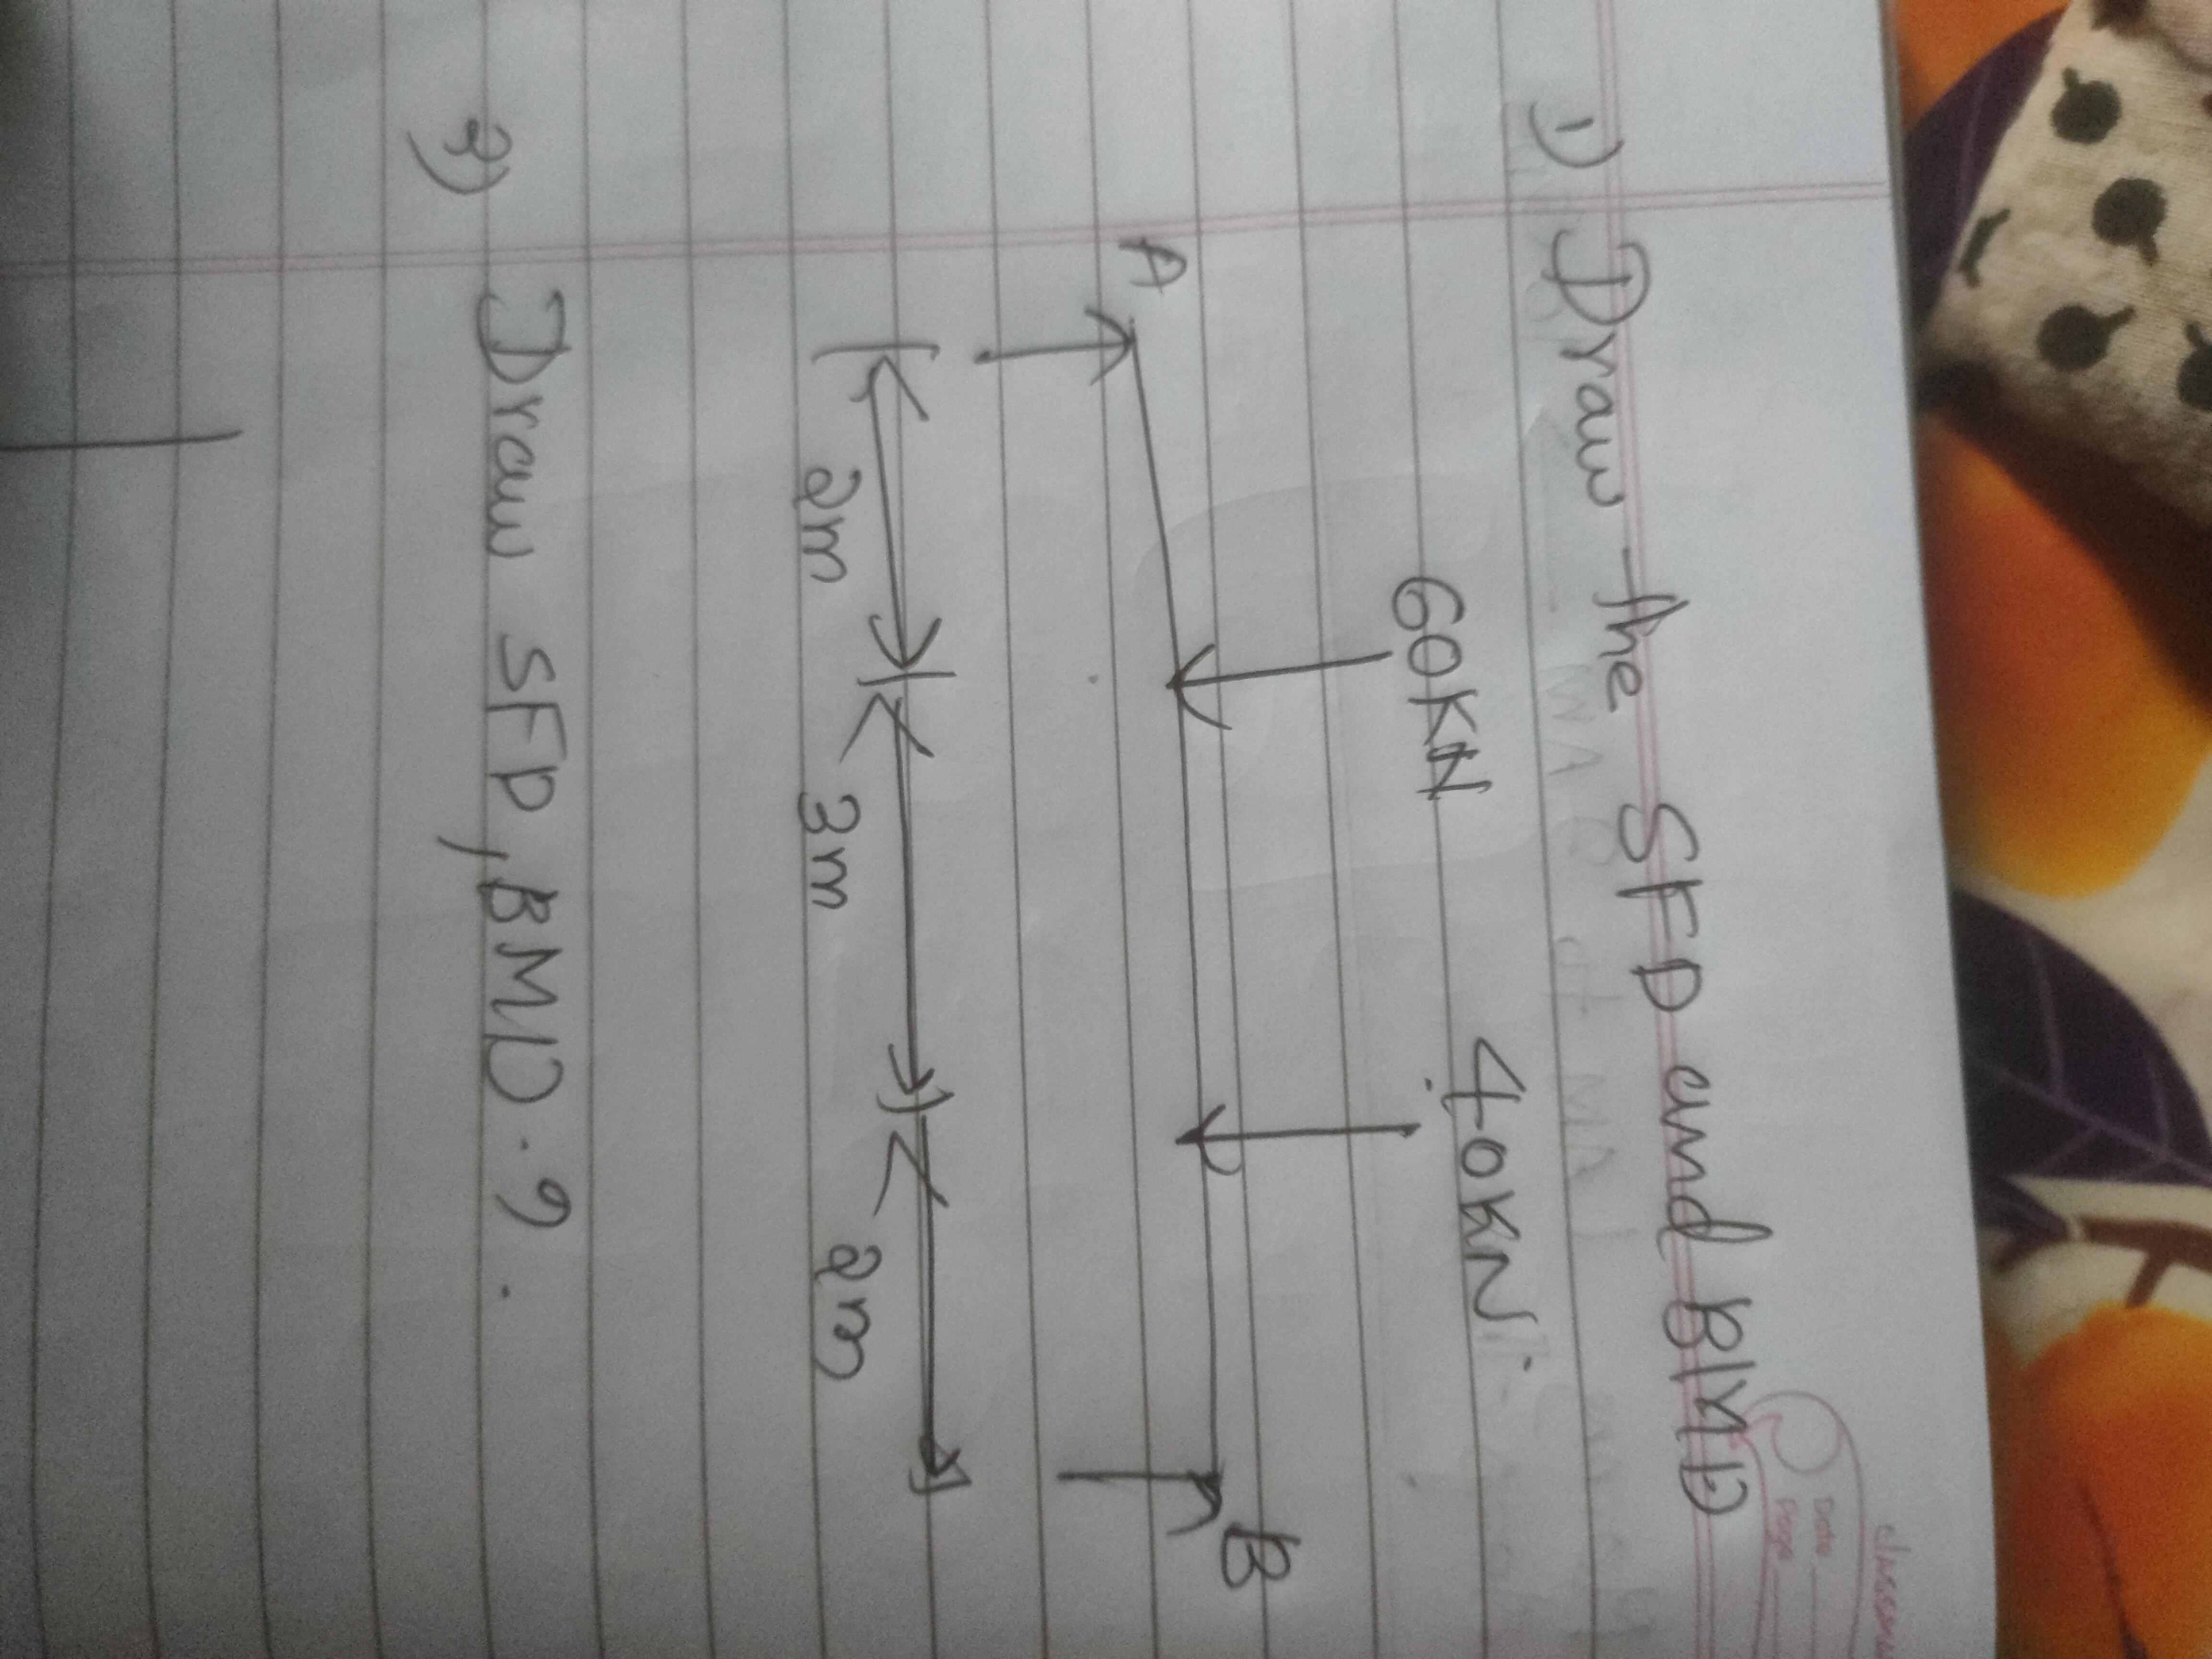 1) Draw the SFD and BMD
60KN 40KN
A B
2m 3m 2m
2) Draw SFD, BMD.?
Date
Page